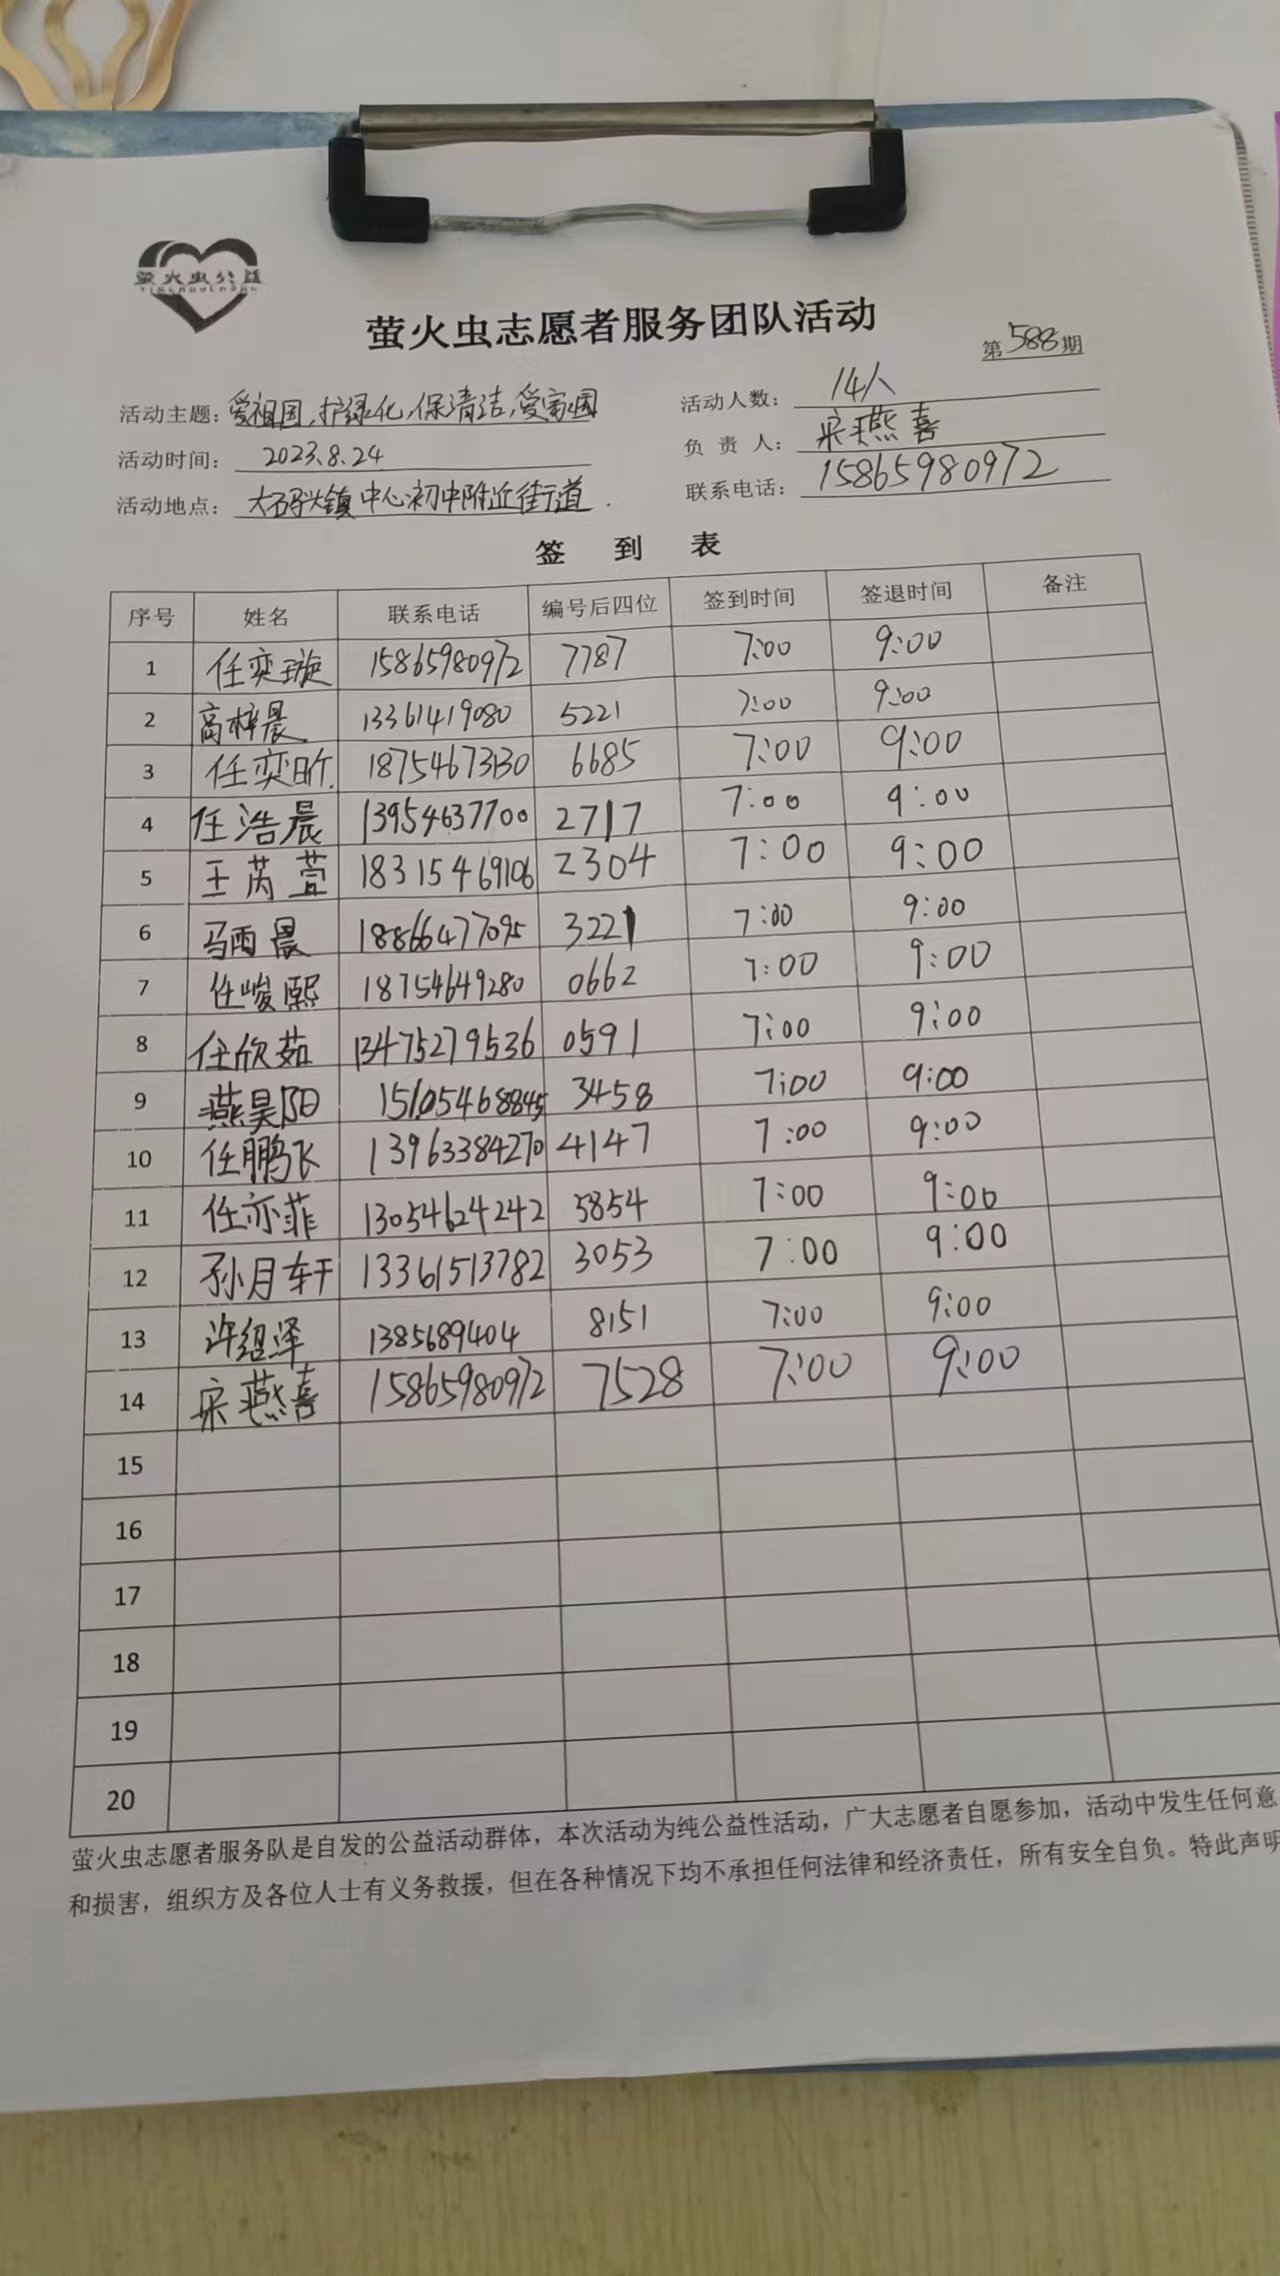 萤火虫公益
萤火虫志愿者服务团队活动
第588期
活动主题：爱祖国，护绿化，保清洁，爱家园 活动人数：14人
活动时间：2023.8.24 负责人：宋燕喜
活动地点：大码头镇中心初中附近街道. 联系电话：15865980972
签 到 表
序号 姓名 联系电话 编号后四位 签到时间 签退时间 备注
1 任奕璇 15865980972 7787 7:00 9:00
2 高梓晨 13361419080 5221 7:00 9:00
3 任奕昕. 18754673130 6685 7:00 9:00
4 任浩晨 13954637700 2717 7:00 9:00
5 王芮萱 18315469106 2304 7:00 9:00
6 马雨晨 18866477095 3221 7:00 9:00
7 任峻熙 18754649280 0662 7:00 9:00
8 任欣茹 13475279536 0591 7:00 9:00
9 燕昊阳 15105468845 3458 7:00 9:00
10 任鹏飞 13963384270 4147 7:00 9:00
11 任亦菲 13054624242 5854 7:00 9:00
12 孙月轩 13361513782 3053 7:00 9:00
13 许绍泽 1385689404 8151 7:00 9:00
14 宋燕喜 15865980972 7528 7:00 9:00
15
16
17
18
19
20
萤火虫志愿者服务队是自发的公益活动群体，本次活动为纯公益性活动，广大志愿者自愿参加，活动中发生任何意
和损害，组织方及各位人士有义务救援，但在各种情况下均不承担任何法律和经济责任，所有安全自负。特此声明